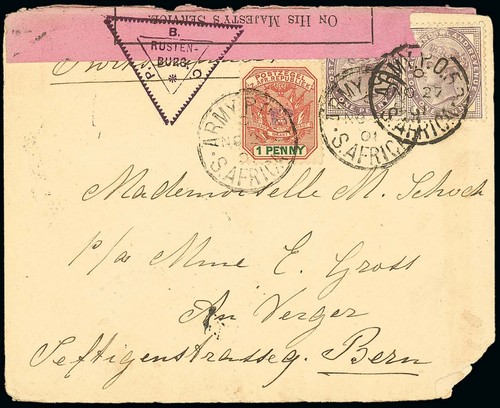 ON HIS MAJESTY'S SERVICE.
P. B. C
RUSTEN-
BURG.
POSTZEGEL
Z. AFR. REPUBLIEK
1 PENNY
ARMY P.O.
S. AFRICA
ARMY
NO
01
S. AFRICA
ARMY P.O. 53
NO 27
01
S. AFRICA
Mademoiselle M. Schoch
p/a Mme E. Gross
An Verger
Seftigenstrasse 9. Bern